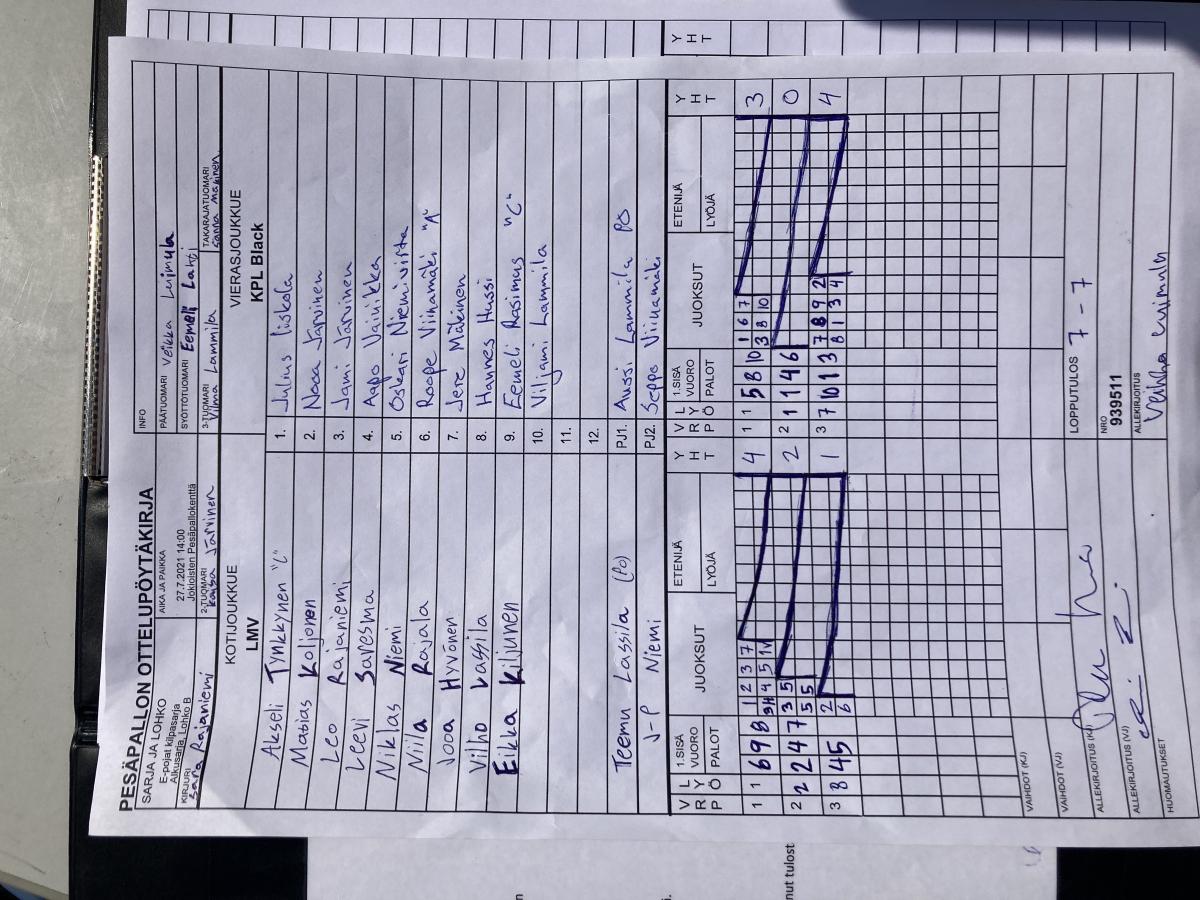 Y H T
PESÄPALLON OTTELUPÖYTÄKIRJA
SARJA JA LOHKO
E-pojat kilpasarja
Alkusarja, Lohko B
AIKA JA PAIKKA
27.7.2021 14:00
Jokioisten Pesäpallokenttä
INFO
PÄÄTUOMARI Veikka Luimula
SYÖTTÖTUOMARI Eemeli Lahti
KIRJURI Sara Rajaniemi
2-TUOMARI Kaisa Järvinen
3-TUOMARI Vilma Lammila
TAKARAJATUOMARI Sanna Mäkinen
KOTIJOUKKUE
LMV
VIERASJOUKKUE
KPL Black
Akseli Tynkkynen "C" 1. Julius Iiskola
Matias Koljonen 2. Nooa Järvinen
Leo Rajaniemi 3. Jami Järvinen
Leevi Saresma 4. Aapo Vainikka
Niklas Niemi 5. Oskari Niemivirta
Niila Rajala 6. Roope Viinamäki "A"
Jooa Hyvönen 7. Jere Mäkinen
Vilho Lassila 8. Hannes Hussi
Eikka Kiljunen 9. Eemeli Rasimus "C"
10. Viljami Lammila
11.
12.
Teemu Lassila (PO) PJ1. Anssi Lammila PO
J-P Niemi PJ2. Seppo Viinamäki
V R P L Y Ö 1.SISÄ VUORO PALOT JUOKSUT ETENIJÄ LYÖJÄ Y H T V R P L Y Ö 1.SISÄ VUORO PALOT JUOKSUT ETENIJÄ LYÖJÄ Y H T
1 1 6 9 8 1 2 3 7 4 1 1 5 8 10 1 6 7 3
3H 4 5 1V 3 8 10
2 2 2 4 7 3 5 2 2 1 1 4 6 0
5 5
3 8 4 5 2 1 3 7 10 1 3 7 8 9 2 4
6 8 1 3 4
VAIHDOT (KJ)
VAIHDOT (VJ)
ALLEKIRJOITUS (KJ)
LOPPUTULOS 7 - 7
ALLEKIRJOITUS (VJ)
NRO
939511
HUOMAUTUKSET
ALLEKIRJOITUS
Veikka Luimula
nut tulost